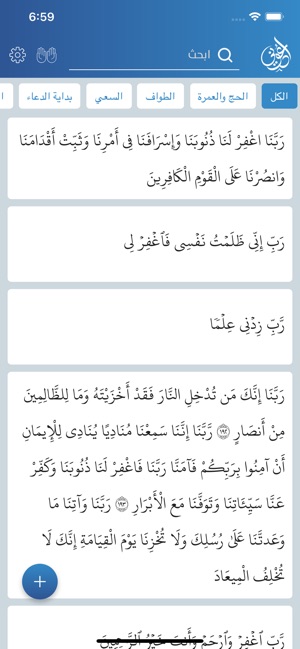 6:59
ابحث
الكل
الحج والعمرة
الطواف
السعي
بداية الدعاء
رَبَّنَا اغْفِرْ لَنَا ذُنُوبَنَا وَإِسْرَافَنَا فِي أَمْرِنَا وَثَبِّتْ أَقْدَامَنَا
وَانصُرْنَا عَلَى الْقَوْمِ الْكَافِرِينَ
رَبِّ إِنِّي ظَلَمْتُ نَفْسِي فَٱغْفِرْ لِي
رَّبِّ زِدْنِي عِلْمًا
رَبَّنَا إِنَّكَ مَن تُدْخِلِ النَّارَ فَقَدْ أَخْزَيْتَهُ وَمَا لِلظَّالِمِينَ
مِنْ أَنصَارٍ ﴿١٩٢﴾ رَّبَّنَا إِنَّنَا سَمِعْنَا مُنَادِيًا يُنَادِي لِلْإِيمَانِ
أَنْ آمِنُوا بِرَبِّكُمْ فَآمَنَّا رَبَّنَا فَاغْفِرْ لَنَا ذُنُوبَنَا وَكَفِّرْ
عَنَّا سَيِّئَاتِنَا وَتَوَفَّنَا مَعَ الْأَبْرَارِ ﴿١٩٣﴾ رَبَّنَا وَآتِنَا مَا
وَعَدتَّنَا عَلَىٰ رُسُلِكَ وَلَا تُخْزِنَا يَوْمَ الْقِيَامَةِ إِنَّكَ لَا
تُخْلِفُ الْمِيعَادَ
رَبِّ ٱغْفِرْ وَٱرْحَمْ وَأَنتَ خَيْرُ ٱلرَّٰحِمِينَ